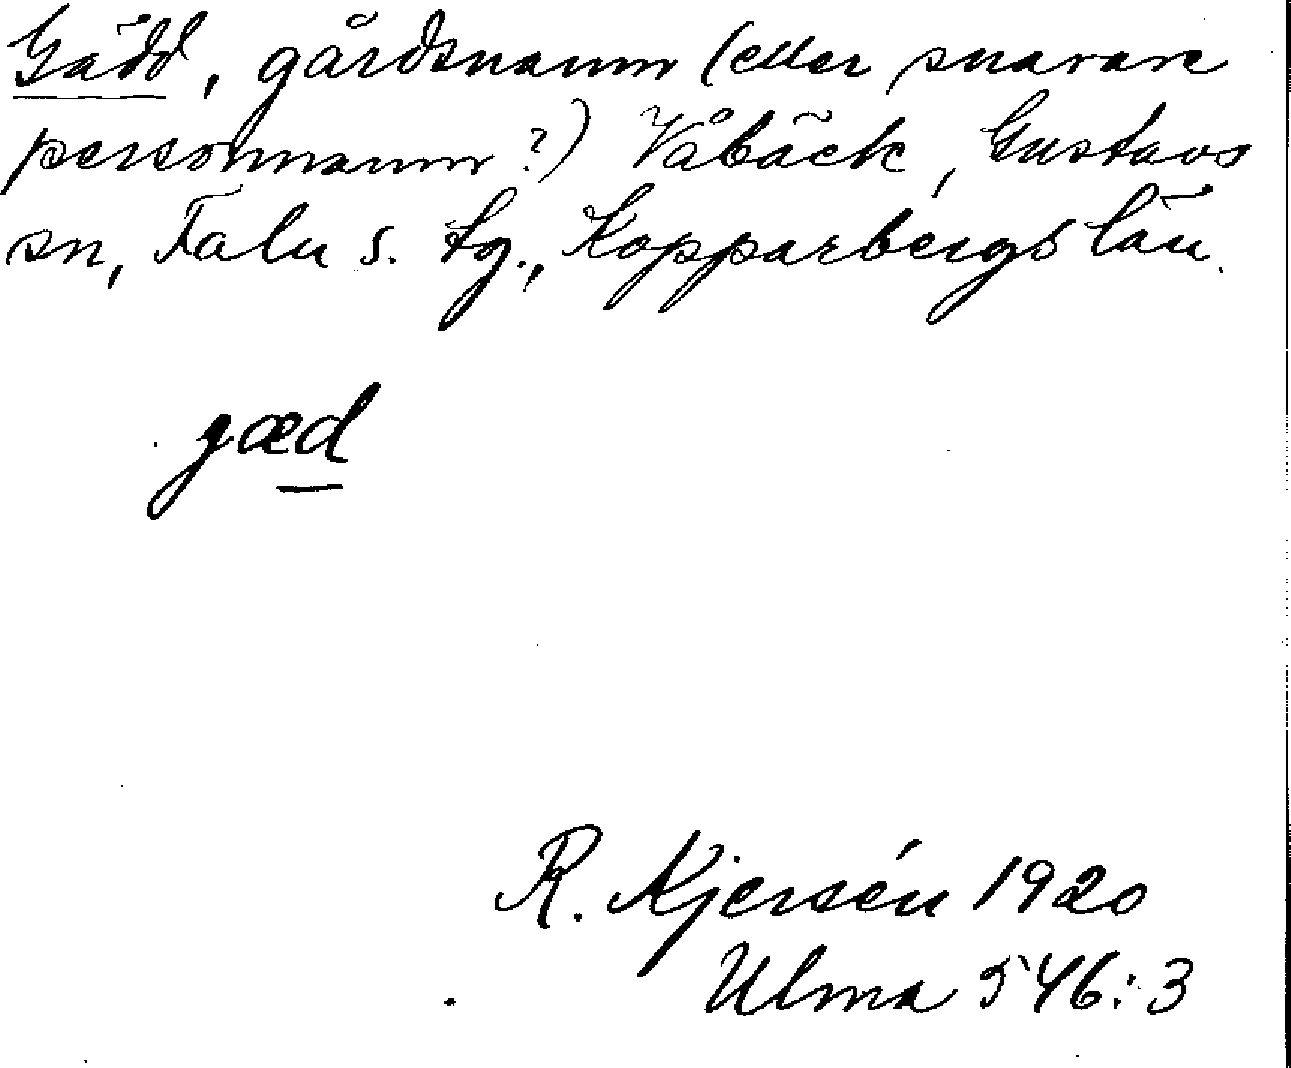 Gädd, gårdsnamn (eller snarare
personnamn?) Våbäck, Gustavs
sn, Falu s. tg., Kopparbergs län.
gæd
R. Kjersén 1920
Ulma 546:3